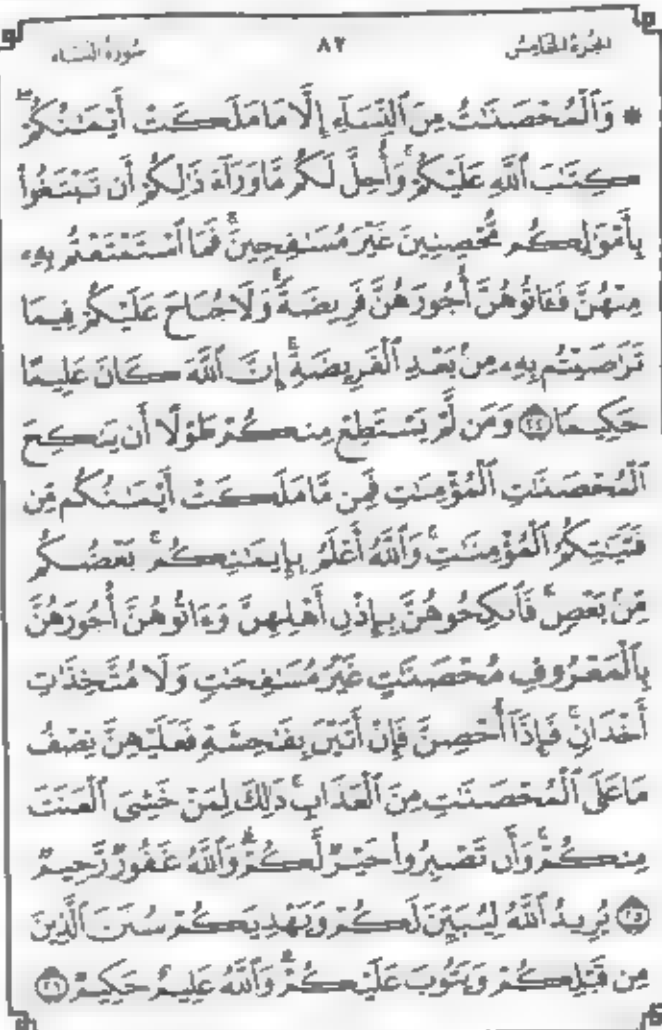 الجزء الخامس ٨٢ سورة النساء
* وَٱلْمُحْصَنَٰتُ مِنَ ٱلنِّسَآءِ إِلَّا مَا مَلَكَتْ أَيْمَٰنُكُمْۖ
كِتَٰبَ ٱللَّهِ عَلَيْكُمْۚ وَأُحِلَّ لَكُم مَّا وَرَآءَ ذَٰلِكُمْ أَن تَبْتَغُوا۟
بِأَمْوَٰلِكُم مُّحْصِنِينَ غَيْرَ مُسَٰفِحِينَۚ فَمَا ٱسْتَمْتَعْتُم بِهِۦ
مِنْهُنَّ فَـَٔاتُوهُنَّ أُجُورَهُنَّ فَرِيضَةًۚ وَلَا جُنَاحَ عَلَيْكُمْ فِيمَا
تَرَٰضَيْتُم بِهِۦ مِنۢ بَعْدِ ٱلْفَرِيضَةِۚ إِنَّ ٱللَّهَ كَانَ عَلِيمًا
حَكِيمًا ٢٤ وَمَن لَّمْ يَسْتَطِعْ مِنكُمْ طَوْلًا أَن يَنكِحَ
ٱلْمُحْصَنَٰتِ ٱلْمُؤْمِنَٰتِ فَمِن مَّا مَلَكَتْ أَيْمَٰنُكُم مِّن
فَتَيَٰتِكُمُ ٱلْمُؤْمِنَٰتِۚ وَٱللَّهُ أَعْلَمُ بِإِيمَٰنِكُمۚ بَعْضُكُم
مِّنۢ بَعْضٍۚ فَٱنكِحُوهُنَّ بِإِذْنِ أَهْلِهِنَّ وَءَاتُوهُنَّ أُجُورَهُنَّ
بِٱلْمَعْرُوفِ مُحْصَنَٰتٍ غَيْرَ مُسَٰفِحَٰتٍ وَلَا مُتَّخِذَٰتِ
أَخْدَانٍۚ فَإِذَآ أُحْصِنَّ فَإِنْ أَتَيْنَ بِفَٰحِشَةٍ فَعَلَيْهِنَّ نِصْفُ
مَا عَلَى ٱلْمُحْصَنَٰتِ مِنَ ٱلْعَذَابِۚ ذَٰلِكَ لِمَنْ خَشِىَ ٱلْعَنَتَ
مِنكُمْۚ وَأَن تَصْبِرُوا۟ خَيْرٌ لَّكُمْۗ وَٱللَّهُ غَفُورٌ رَّحِيمٌ
٢٥ يُرِيدُ ٱللَّهُ لِيُبَيِّنَ لَكُمْ وَيَهْدِيَكُمْ سُنَنَ ٱلَّذِينَ
مِن قَبْلِكُمْ وَيَتُوبَ عَلَيْكُمْۗ وَٱللَّهُ عَلِيمٌ حَكِيمٌ ٢٦